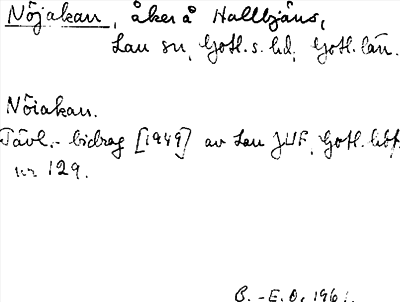 Nöjakan, åker å Hallbjäns,
Lau sn, Gotl. s. hd, Gotl. län.
Nöiakan.
Tävl.- bidrag [1949] av Lau JUF, Gotl. hbf.
nr 129.
B. - E. O. 196